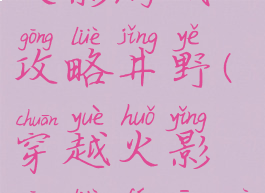 gōng lüè jǐng yě
攻略井野(
chuān yuè huǒ yǐng
穿越火影